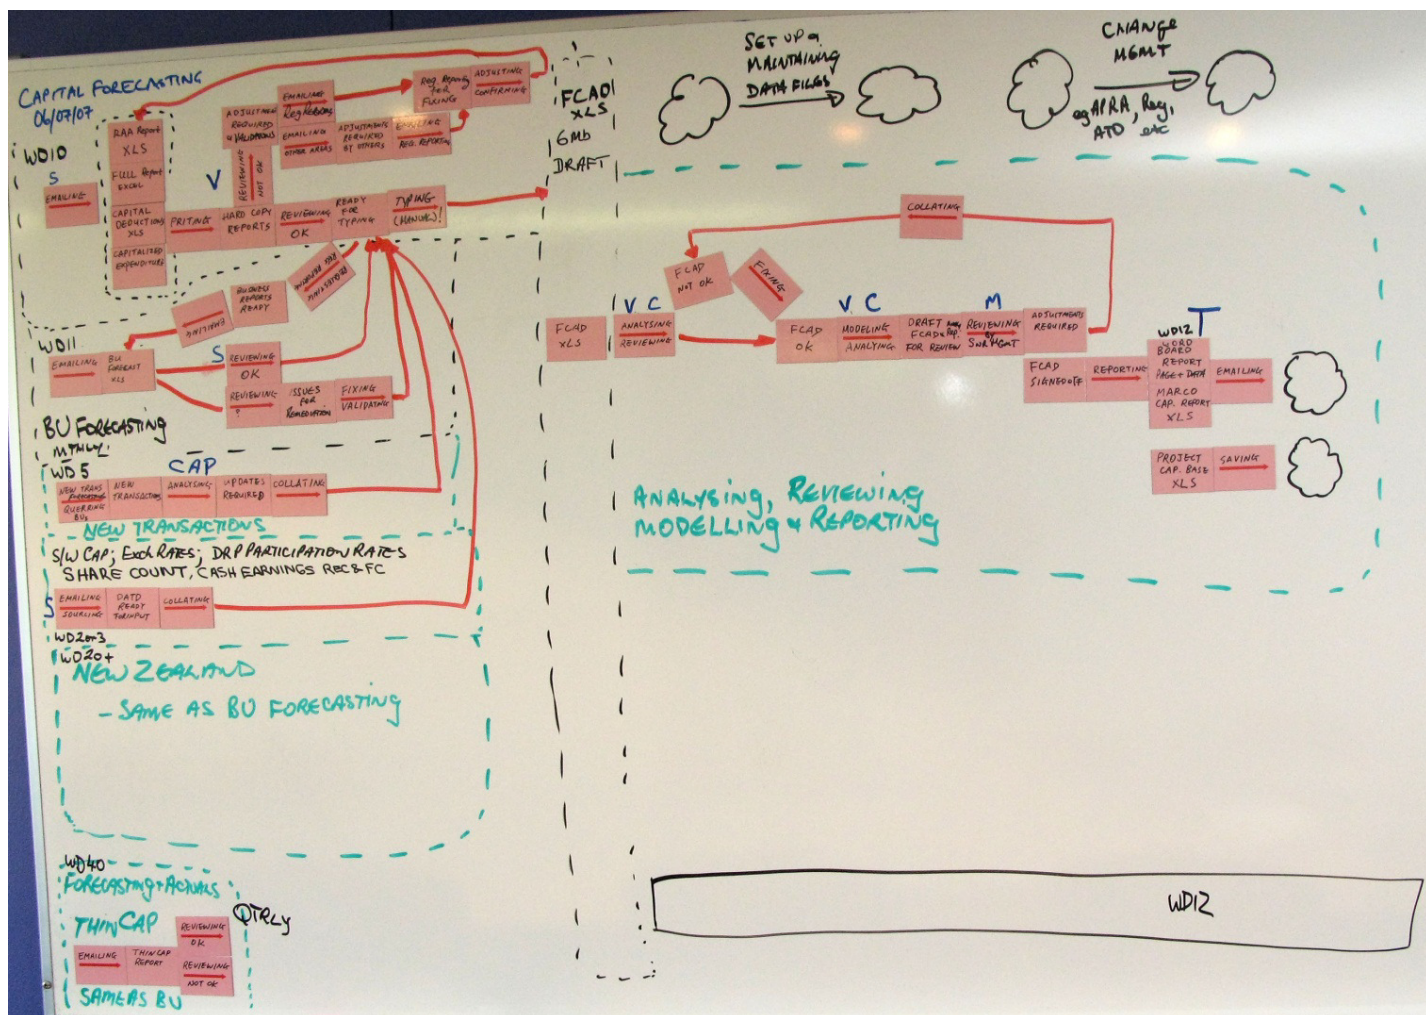 CAPITAL FORECASTING
06/07/07
WD10
S
EMAILING
RAA Report
XLS
FULL Report
EXCEL
CAPITAL
DEDUCTIONS
XLS
CAPITALIZED
EXPENDITURE
V
PRITING
HARD COPY
REPORTS
REVIEWING
NOT OK
ADJUSTMENTS
REQUIRED
& VALIDATIONS
EMAILING
EMAILING
OTHER AREAS
ADJUSTMENTS
REQUIRED
BY OTHERS
EMAILING
REG. REPORTING
Reg. Reporting
FOR
FIXING
ADJUSTING
CONFIRMING
REVIEWING
OK
READY
FOR
TYPING
TYPING
(MANUAL)!
REQUESTING
BUSINESS
REPORTS
READY
EMAILING
WD11
EMAILING
BU
FORECAST
XLS
S
REVIEWING
OK
REVIEWING
?
ISSUES
FOR
REMEDIATION
FIXING
VALIDATING
BU FORECASTING
MTHLY
WD5
CAP
NEW TRANS
QUERRING
BUs
NEW
TRANSACTION
ANALYSING
UPDATES
REQUIRED
COLLATING
NEW TRANSACTIONS
S/W CAP; Exch RATES; DRP PARTICIPATION RATES
SHARE COUNT, CASH EARNINGS REC & FC
S
EMAILING
SOURCING
DATD
READY
FORINPUT
COLLATING
WD2or3
WD20+
NEW ZEALAND
- SAME AS BU FORECASTING
WD40
FORECASTING + ACTUALS
QTRLY
THIN CAP
EMAILING
THINCAP
REPORT
REVIEWING
OK
REVIEWING
NOT OK
SAME AS BU
FCAD
XLS
6Mb
DRAFT
SET UP &
MAINTAINING
DATA FILES
CHANGE
MGMT
eg APRA, Reg,
ATO, etc
COLLATING
FCAD
NOT OK
FIXING
FCAD
XLS
V C
ANALYSING
REVIEWING
FCAD
OK
V C
MODELING
ANALYSING
DRAFT
FCAD & Rep.
FOR REVIEW
M
REVIEWING
BY
SNR MGMT
ADJUSTMENTS
REQUIRED
FCAD
SIGNEDOFF
REPORTING
WD12
T
WORD
BOARD
REPORT
PAGE + DATA
MARCO
CAP. REPORT
XLS
EMAILING
PROJECT
CAP. BASE
XLS
SAVING
ANALYSING, REVIEWING
MODELLING & REPORTING
WD12